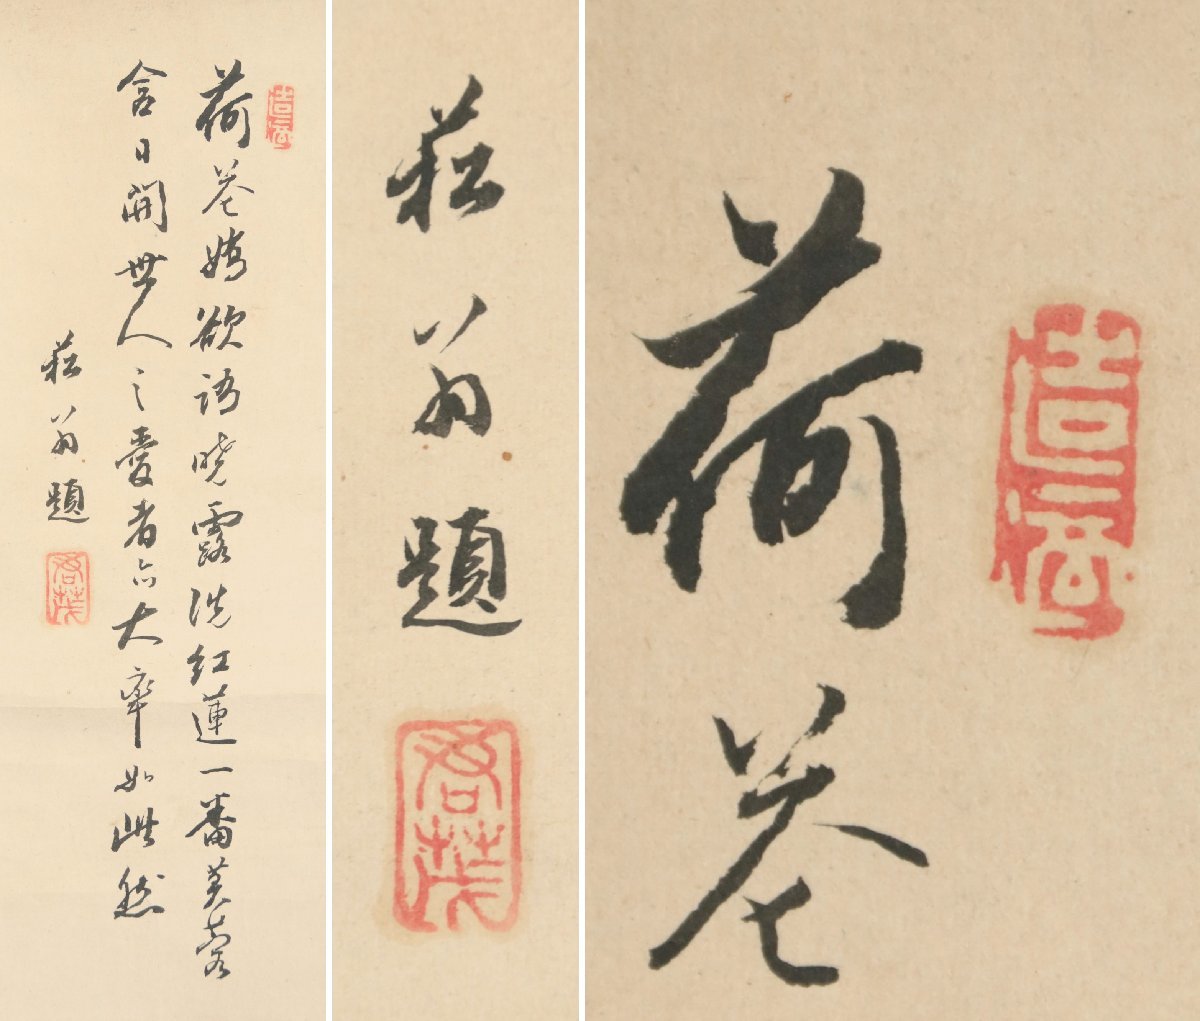 荷花嬌欲語曉露洗紅蓮一番芙蓉
含日開世人之愛者亦大率如此然
菘翁題
君茂
菘翁題
君茂
荷花